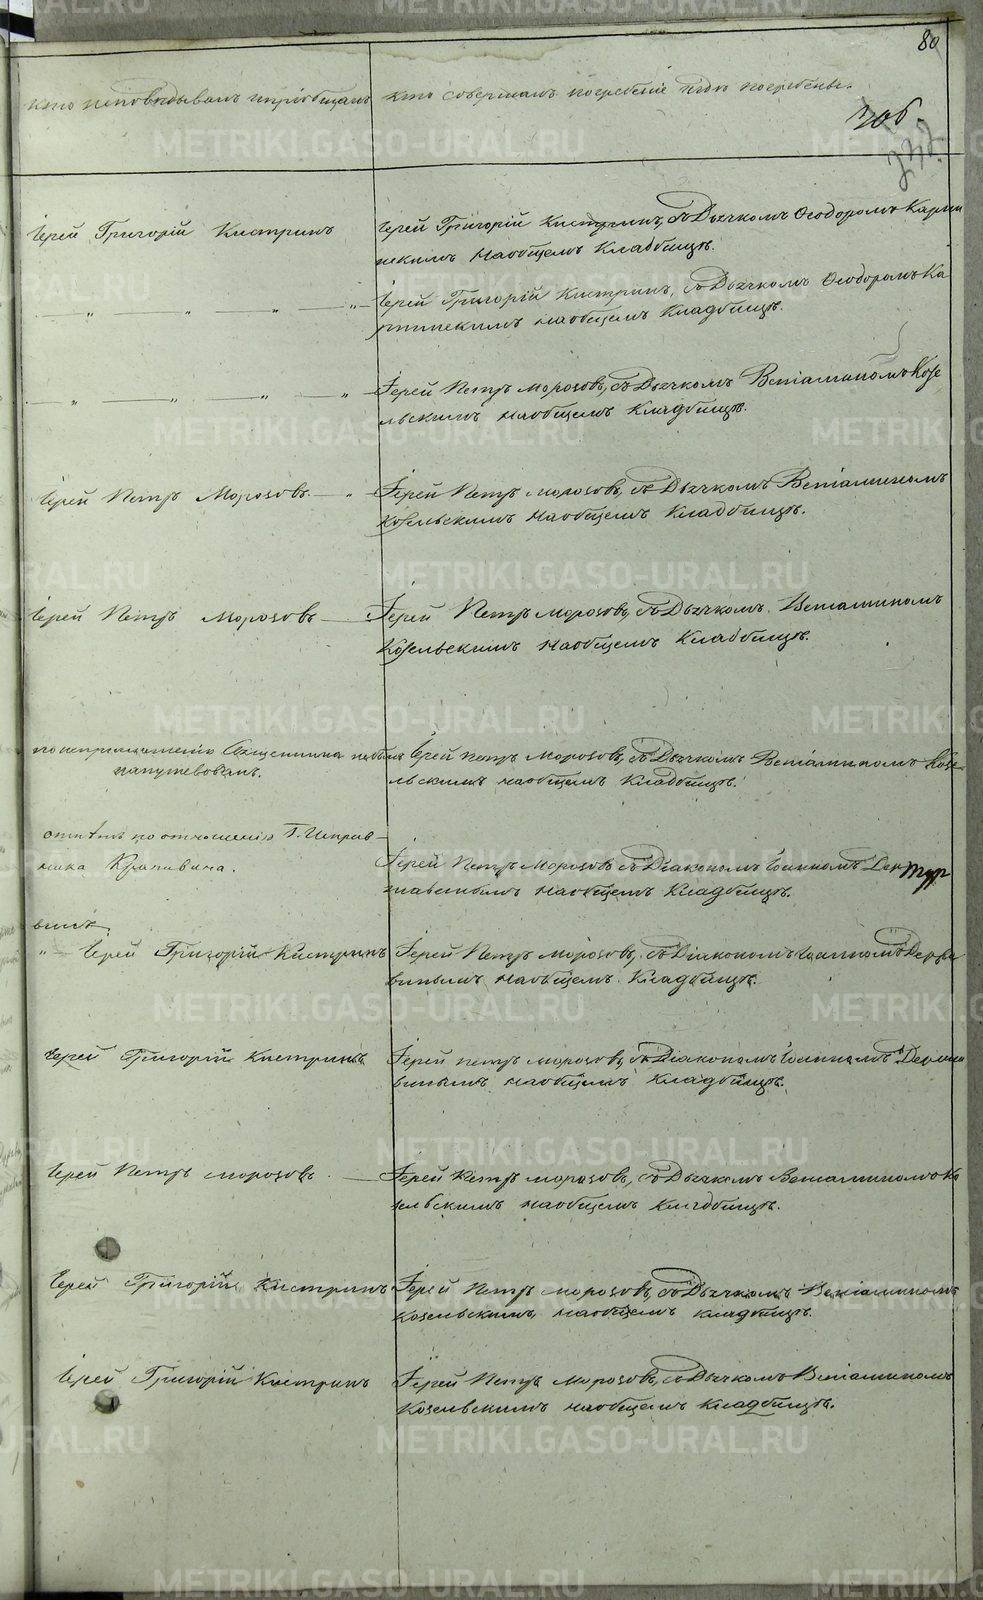 80
кто исповѣдывалъ и пріобщалъ
кто совершалъ погребеніе и гдѣ погребены.
306.
Іерей Григорій Кистринъ
Іерей Григорій Кистринъ, съ Дьячкомъ Ѳеодоромъ
наобщемъ Кладбищѣ.
Іерей Григорій Кистринъ, съ Дьячкомъ Ѳеодоромъ Ка
наобщемъ Кладбищѣ.
Іерей Петръ Морозовъ, съ Дьячкомъ Веніаминомъ Козе
льскимъ наобщемъ Кладбищѣ.
Іерей Петръ Морозовъ.
Іерей Петръ Морозовъ, съ Дьячкомъ Веніаминомъ
Козельскимъ наобщемъ Кладбищѣ.
Іерей Петръ Морозовъ
Іерей Петръ Морозовъ, съ Дьячкомъ Веніаминомъ
Козельскимъ наобщемъ Кладбищѣ.
Священника
напутевованъ.
Іерей Петръ Морозовъ, съ Дьячкомъ Веніаминомъ Козе
льскимъ наобщемъ Кладбищѣ.
по отношенію Г. Исправ
ника Крапивина.
Іерей Петръ Морозовъ съ Діакономъ Іоанномъ
наобщемъ Кладбищѣ.
Іерей Григорій Кистринъ
Іерей Петръ Морозовъ, съ Діакономъ Іоанномъ Держа
винымъ наобщемъ Кладбищѣ.
Іерей Григорій Кистринъ
Іерей Петръ Морозовъ, съ Діакономъ Іоанномъ Держа
винымъ наобщемъ Кладбищѣ.
Іерей Петръ Морозовъ.
Іерей Петръ Морозовъ, съ Дьячкомъ Веніаминомъ Ко
зельскимъ наобщемъ Кладбищѣ.
Іерей Григорій Кистринъ
Іерей Петръ Морозовъ, съ Дьячкомъ Веніаминомъ
Козельскимъ наобщемъ Кладбищѣ.
Іерей Григорій Кистринъ
Іерей Петръ Морозовъ, съ Дьячкомъ Веніаминомъ
Козельскимъ наобщемъ Кладбищѣ.
METRIKI.GASO-URAL.RU